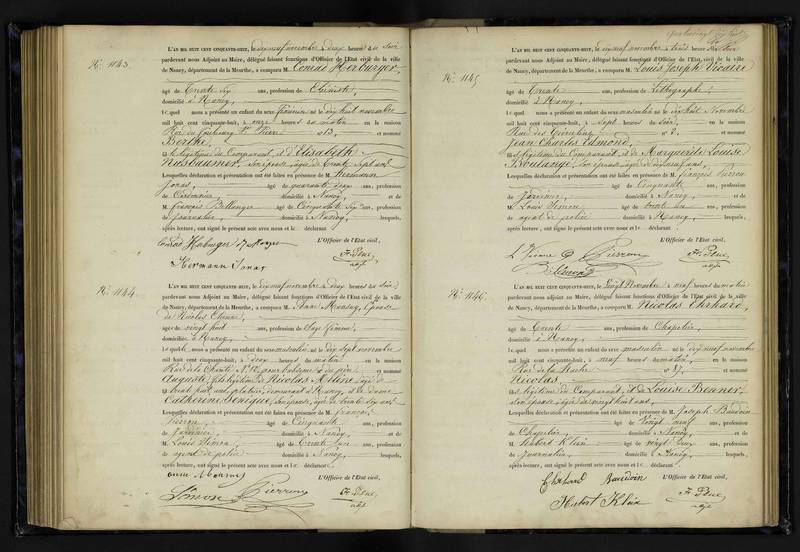 N° 1143.
L'AN MIL HUIT CENT CINQUANTE-HUIT, le dix neuf novembre à deux heures du soir
pardevant nous Adjoint au Maire, délégué faisant fonctions d'Officier de l'État civil de la ville
de Nancy, département de la Meurthe, a comparu M. Conrad Herburger,
âgé de Trente six ans, profession de Ebéniste,
domicilié à Nancy,
lequel nous a présenté un enfant du sexe féminin né le dix huit novembre
mil huit cent cinquante-huit, à onze heures du matin en la maison
Rue du faubourg St Pierre n° 13, et nommé
Berthe,
fille légitime du Comparant, et d'Elisabeth
Nusbaumer, son épouse, âgée de Trente sept ans,
Lesquelles déclaration et présentation ont été faites en présence de M. Hermann
Jonas, âgé de quarante deux ans, profession
de domicilié à Nancy, et de
M. françois Bellanger âgé de Cinquante six ans, profession
de journalier, domicilié à Nancy, lesquels,
après lecture, ont signé le présent acte avec nous et le déclarant
L'Officier de l'État civil,
Hermann Jonas
N° 1144.
L'AN MIL HUIT CENT CINQUANTE-HUIT, le dix neuf novembre à deux heures du soir
pardevant nous Adjoint au Maire, délégué faisant fonctions d'Officier de l'État civil de la ville
de Nancy, département de la Meurthe, a comparu M. Anne Mansuy, épouse
de Nicolas Thomas,
âgé de vingt huit ans, profession de Sage femme,
domiciliée à Nancy,
laquelle nous a présenté un enfant du sexe masculin né le dix sept novembre
mil huit cent cinquante-huit, à deux heures du matin en la maison
Rue de la Charité n° 12, pour l'absence du père et nommé
Auguste, fils légitime de Nicolas âgé de
trente huit ans, demeurant à Nancy, et de dame
Catherine Bénigne, son épouse, âgée de trente six ans,
Lesquelles déclaration et présentation ont été faites en présence de M. françois
Pierron, âgé de Cinquante ans, profession
de Jardinier, domicilié à Nancy, et de
M. Louis Simon, âgé de Trente un ans, profession
de agent de police domicilié à Nancy, lesquels,
après lecture, ont signé le présent acte avec nous et la déclarante
L'Officier de l'État civil,
Simon Pierron
N° 1145
L'AN MIL HUIT CENT CINQUANTE-HUIT, le dix neuf novembre à trois heures du soir
pardevant nous Adjoint au Maire, délégué faisant fonctions d'Officier de l'État civil de la ville
de Nancy, département de la Meurthe, a comparu M. Louis Joseph Vicaire
âgé de Trente ans, profession de Lithographe,
domicilié à Nancy,
lequel nous a présenté un enfant du sexe masculin né le dix huit Novembre
mil huit cent cinquante-huit, à sept heures du soir, en la maison
Rue des n° 2, et nommé
Jean Charles Edmond,
fils légitime du Comparant, et de Marguerite Louise
Boulangé, son épouse, âgée de dix neuf ans,
Lesquelles déclaration et présentation ont été faites en présence de M. françois Pierron
âgé de Cinquante ans, profession
de Jardinier, domicilié à Nancy, et de
M. Louis Simon, âgé de trente un ans, profession
de agent de police domicilié à Nancy, lesquels,
après lecture, ont signé le présent acte avec nous et le déclarant
L'Officier de l'État civil,
Pierron
N° 1146.
L'AN MIL HUIT CENT CINQUANTE-HUIT, le Vingt Novembre à neuf heures du matin
pardevant nous Adjoint au Maire, délégué faisant fonctions d'Officier de l'État civil de la ville
de Nancy, département de la Meurthe, a comparu M. Nicolas Ehrhard,
âgé de Trente ans, profession de Chapelier,
domicilié à Nancy,
lequel nous a présenté un enfant du sexe masculin né le dix neuf novembre
mil huit cent cinquante-huit, à neuf heures du matin, en la maison
Rue de la n° 37, et nommé
Nicolas,
fils légitime du Comparant, et de Louise Benner,
son épouse, âgée de vingt huit ans,
Lesquelles déclaration et présentation ont été faites en présence de M. Joseph Baudoin
âgé de Vingt neuf ans, profession
de Chapelier, domicilié à Nancy, et de
M. Hubert Klein âgé de vingt deux ans, profession
de journalier, domicilié à Nancy, lesquels,
après lecture, ont signé le présent acte avec nous et le déclarant
L'Officier de l'État civil,
Ehrhard Baudoin
Hubert Klein